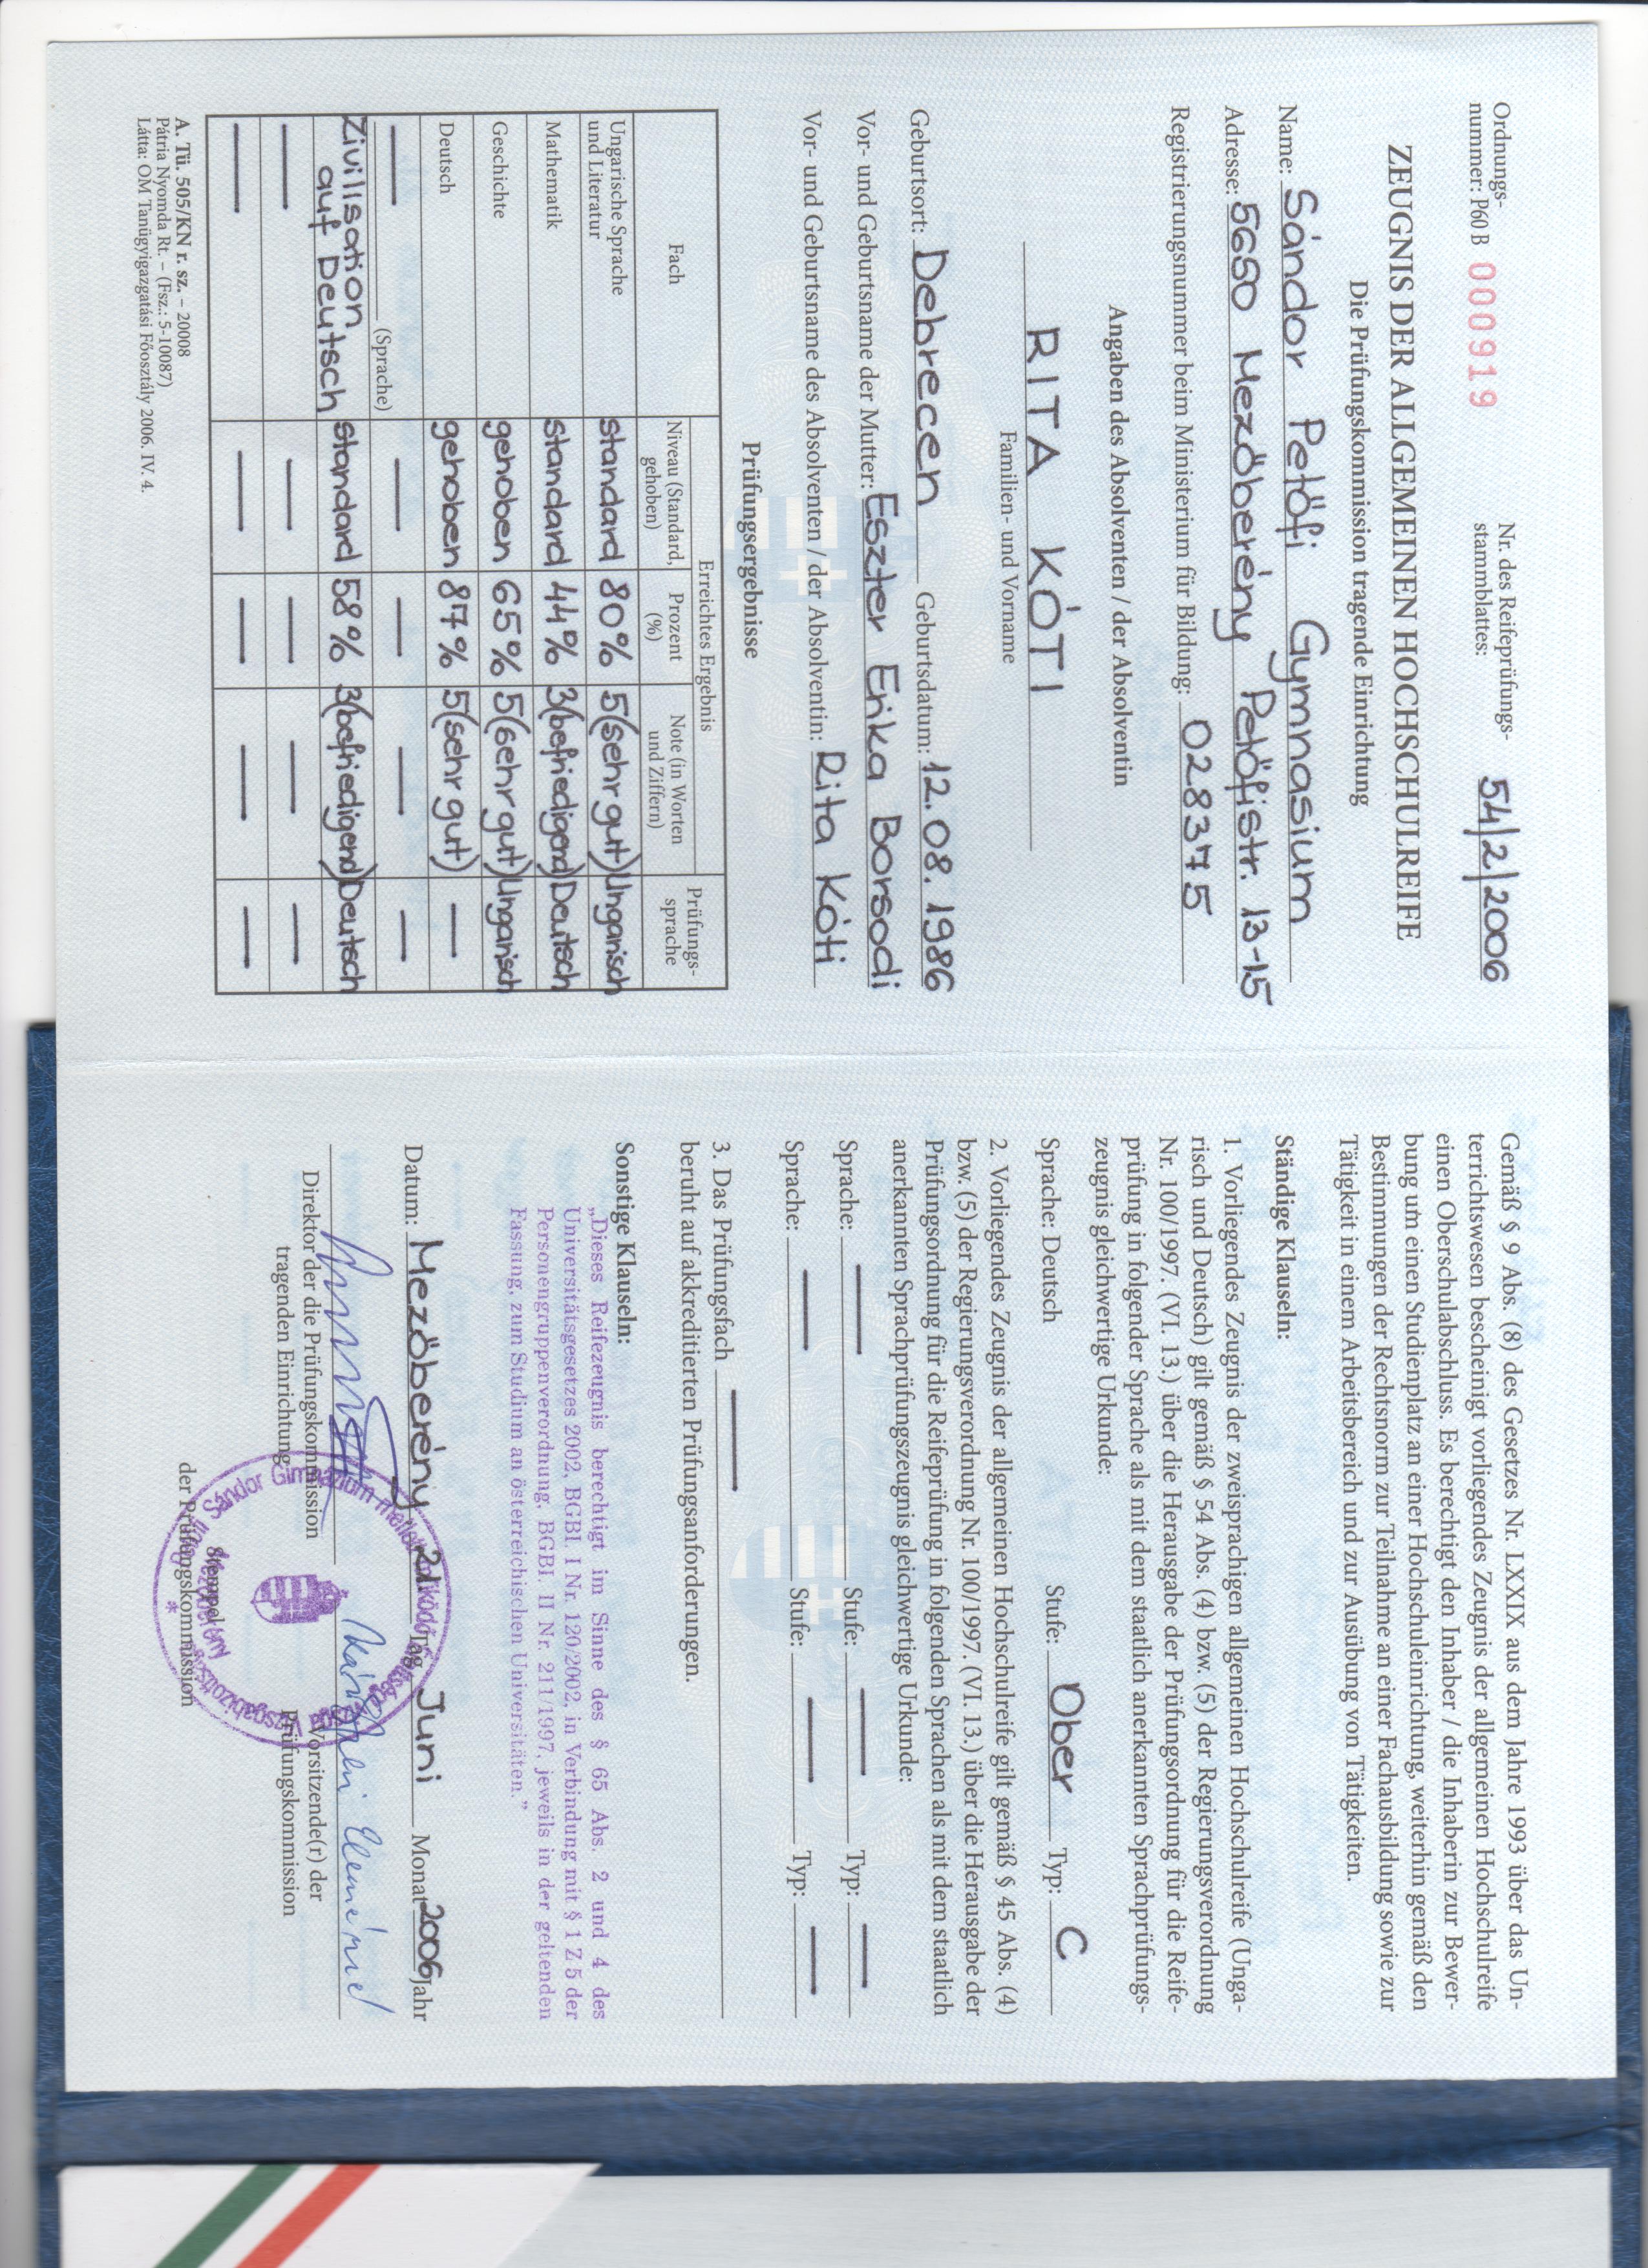 Ordnungs-
nummer: P60 B 000919
Nr. des Reifeprüfungs-
stammblattes: 54/2/2006
ZEUGNIS DER ALLGEMEINEN HOCHSCHULREIFE
Die Prüfungskommission tragende Einrichtung
Name: Sándor Petőfi Gymnasium
Adresse: 5650 Mezőberény Petőfistr. 13-15
Registrierungsnummer beim Ministerium für Bildung: 028375
Angaben des Absolventen / der Absolventin
RITA KÓTI
Familien- und Vorname
Geburtsort: Debrecen Geburtsdatum: 12.08.1986
Vor- und Geburtsname der Mutter: Eszter Erika Borsodi
Vor- und Geburtsname des Absolventen / der Absolventin: Rita Kóti
Prüfungsergebnisse
Fach
Erreichtes Ergebnis
Niveau (Standard, gehoben)
Prozent (%)
Note (in Worten und Ziffern)
Prüfungs-
sprache
Ungarische Sprache
und Literatur standard 80% 5(sehr gut) Ungarisch
Mathematik standard 44% 3(befriedigend) Deutsch
Geschichte gehoben 65% 5(sehr gut) Ungarisch
Deutsch gehoben 87% 5(sehr gut) —
— (Sprache) — — — —
Zivilisation
auf Deutsch standard 58% 3(befriedigend) Deutsch
— — — — —
— — — — —
A. Tü. 505/KN r. sz. – 20008
Pátria Nyomda Rt. – (Fsz.: 5-10087)
Látta: OM Tanügyigazgatási Főosztály 2006. IV. 4.
Gemäß § 9 Abs. (8) des Gesetzes Nr. LXXIX aus dem Jahre 1993 über das Un-
terrichtswesen bescheinigt vorliegendes Zeugnis der allgemeinen Hochschulreife
einen Oberschulabschluss. Es berechtigt den Inhaber / die Inhaberin zur Bewer-
bung um einen Studienplatz an einer Hochschuleinrichtung, weiterhin gemäß den
Bestimmungen der Rechtsnorm zur Teilnahme an einer Fachausbildung sowie zur
Tätigkeit in einem Arbeitsbereich und zur Ausübung von Tätigkeiten.
Ständige Klauseln:
1. Vorliegendes Zeugnis der zweisprachigen allgemeinen Hochschulreife (Unga-
risch und Deutsch) gilt gemäß § 54 Abs. (4) bzw. (5) der Regierungsverordnung
Nr. 100/1997. (VI. 13.) über die Herausgabe der Prüfungsordnung für die Reife-
prüfung in folgender Sprache als mit dem staatlich anerkannten Sprachprüfungs-
zeugnis gleichwertige Urkunde:
Sprache: Deutsch Stufe: Ober Typ: C
2. Vorliegendes Zeugnis der allgemeinen Hochschulreife gilt gemäß § 45 Abs. (4)
bzw. (5) der Regierungsverordnung Nr. 100/1997. (VI. 13.) über die Herausgabe der
Prüfungsordnung für die Reifeprüfung in folgenden Sprachen als mit dem staatlich
anerkannten Sprachprüfungszeugnis gleichwertige Urkunde:
Sprache: — Stufe: — Typ: —
Sprache: — Stufe: — Typ: —
3. Das Prüfungsfach —
beruht auf akkreditierten Prüfungsanforderungen.
Sonstige Klauseln:
„Dieses Reifezeugnis berechtigt im Sinne des § 65 Abs. 2 und 4 des
Universitätsgesetzes 2002, BGBI. I Nr. 120/2002, in Verbindung mit § 1 Z 5 der
Personengruppenverordnung, BGBI. II Nr. 211/1997, jeweils in der geltenden
Fassung, zum Studium an österreichischen Universitäten.”
Datum: Mezőberény 21 Tag Juni Monat 2006 Jahr
Direktor der die Prüfungskommission
tragenden Einrichtung
Vorsitzende(r) der
Prüfungskommission
Stempel
der Prüfungskommission
Sándor Gimnázium mellett működő
Mezőberény